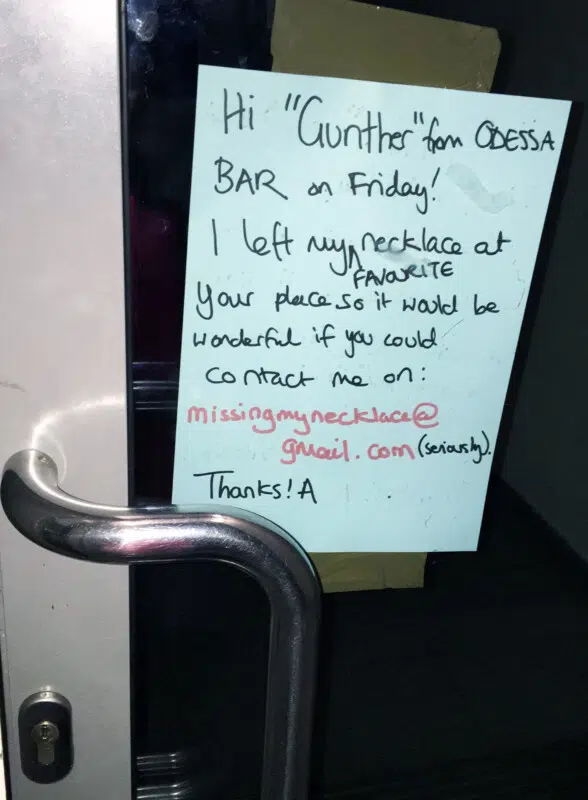 Hi "Gunther" from ODESSA
BAR on Friday!
I left my necklace at
FAVOURITE
Your place so it would be
wonderful if you could
contact me on:
missingmynecklace@
gmail.com (seriously).
Thanks! A